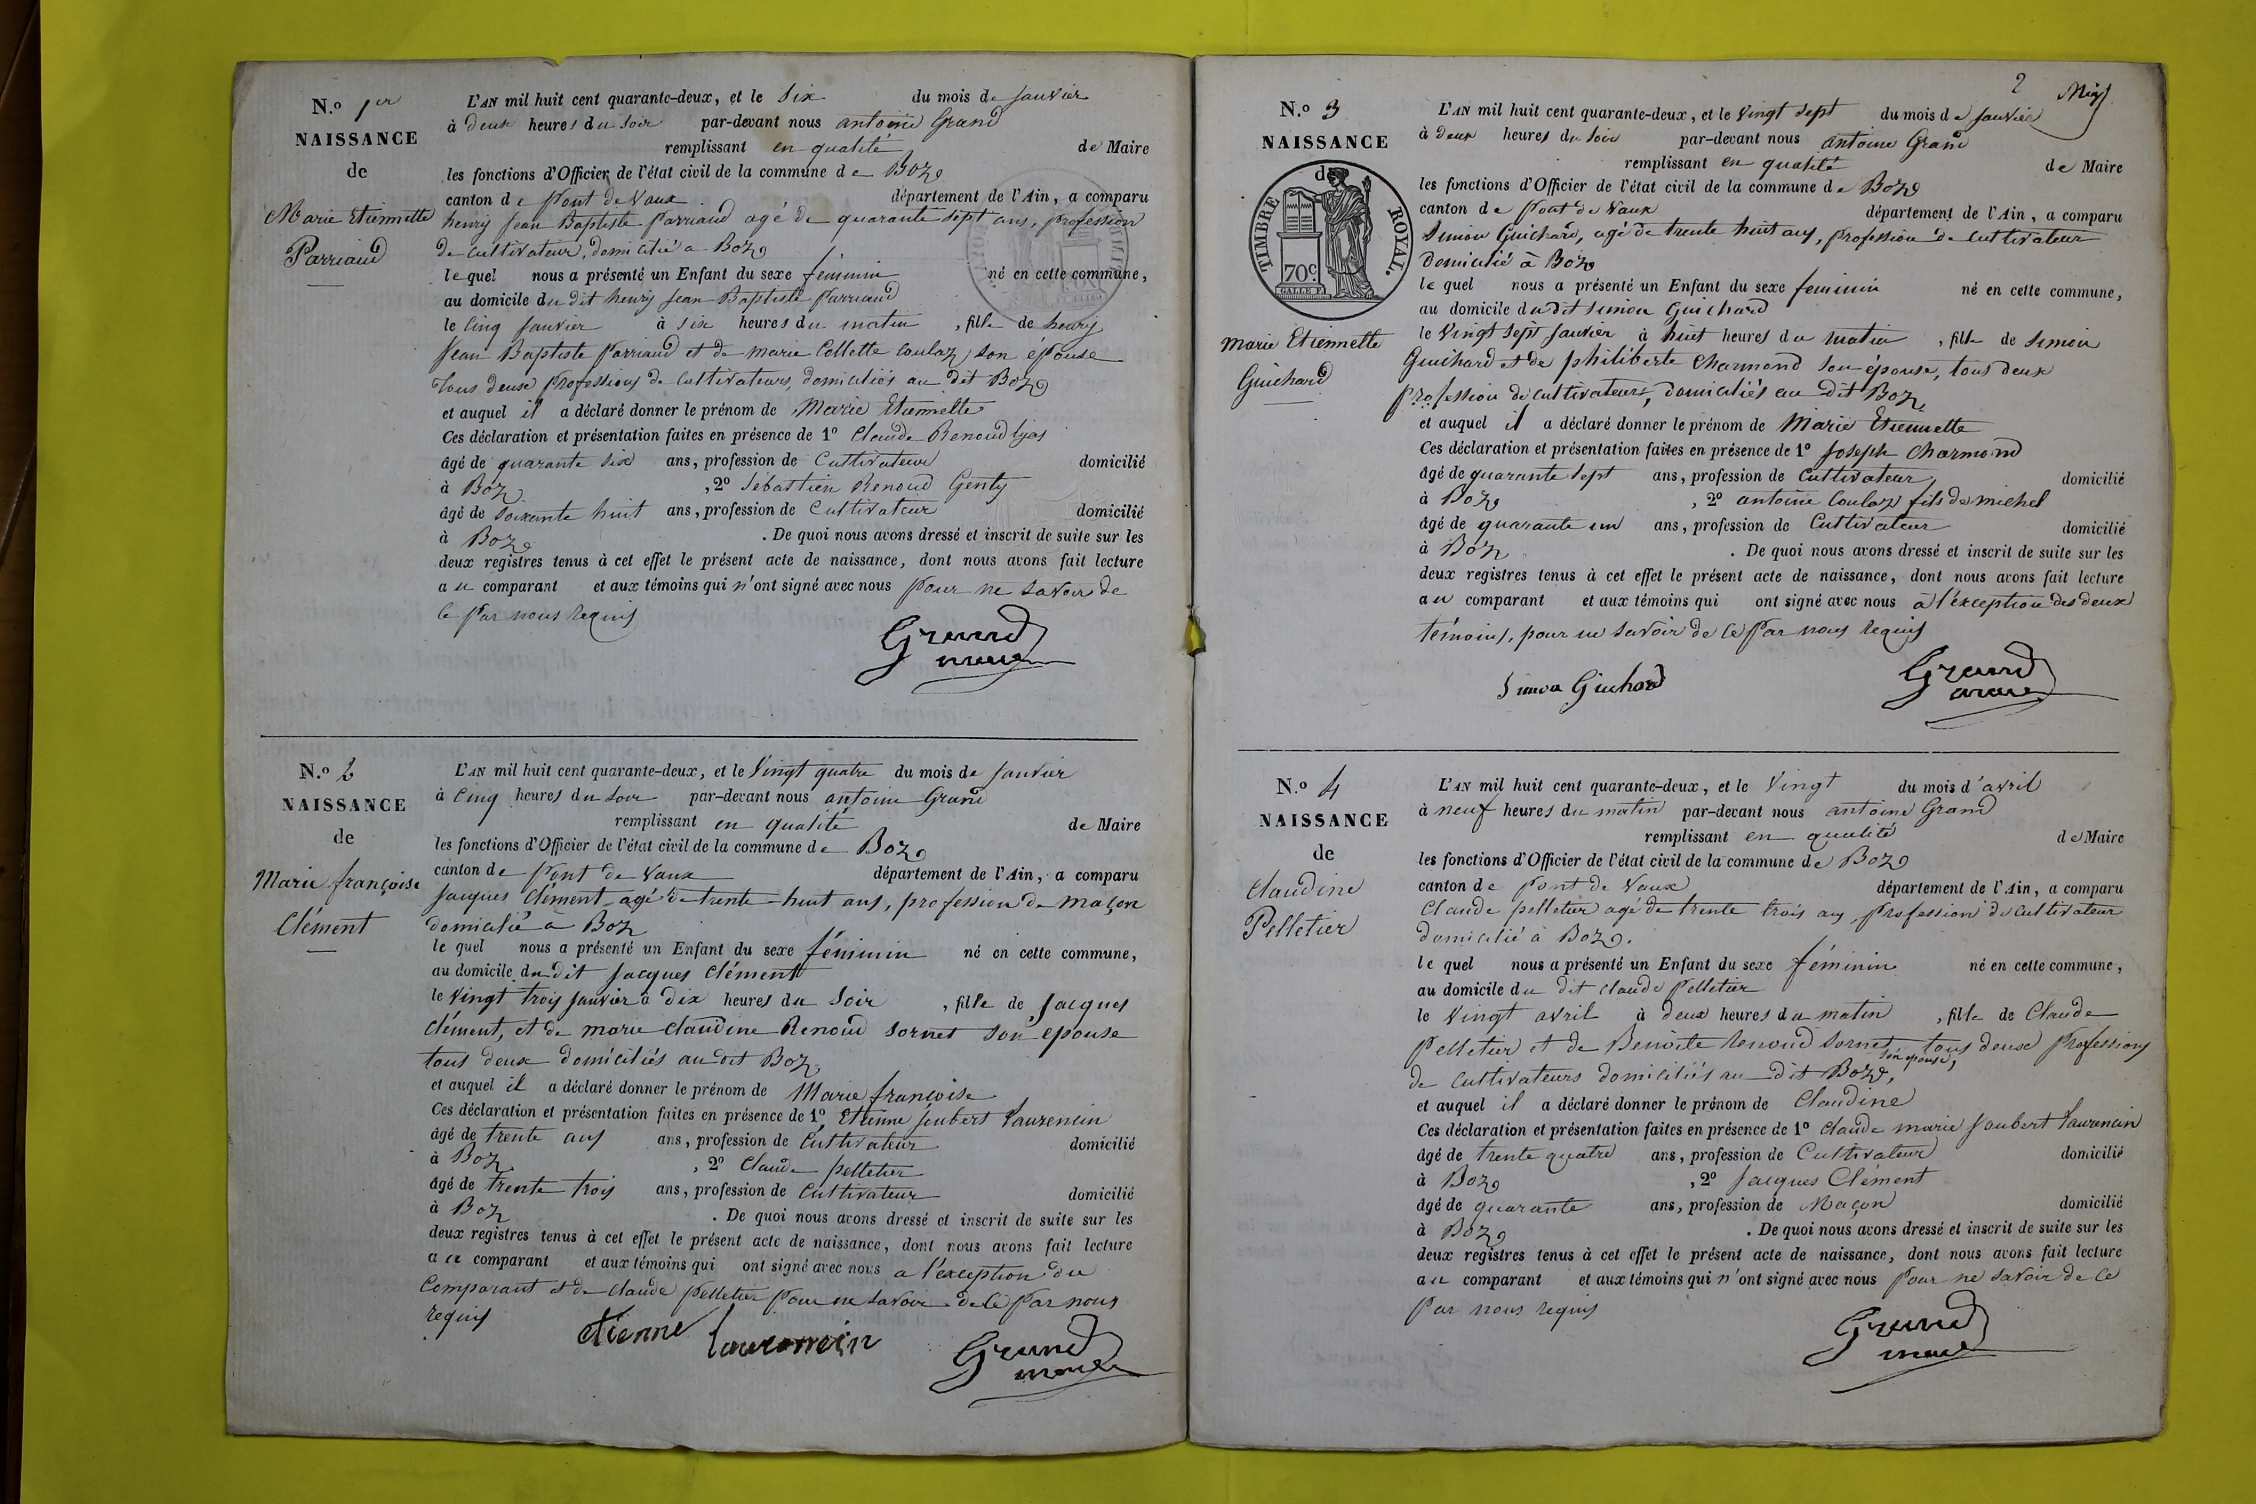 N.º 1er
NAISSANCE
de
Marie Etiennette
Parriaud
L'AN mil huit cent quarante-deux, et le Six du mois de Janvier
à deux heures du Soir par-devant nous antoine Grand
remplissant en qualité de Maire
les fonctions d'Officier de l'état civil de la commune de Boz
canton de Pont de Vaux département de l'Ain, a comparu
henry Jean Baptiste Parriaud agé de quarante Sept ans, profession
de cultivateur, domicilié a Boz
lequel nous a présenté un Enfant du sexe féminin né en cette commune,
au domicile du dit henry Jean Baptiste Parriaud
le Cinq Janvier à Six heures du matin, fille de henry
Jean Baptiste Parriaud et de marie Collette Coulaz, son épouse
tous deux professions de Cultivateurs, domiciliés au dit Boz
et auquel il a déclaré donner le prénom de Marie Etiennette
Ces déclaration et présentation faites en présence de 1º Claude Renoud lyas
âgé de quarante six ans, profession de Cultivateur domicilié
à Boz, 2º Sébastien Renoud Genty
âgé de Soixante huit ans, profession de Cultivateur domicilié
à Boz. De quoi nous avons dressé et inscrit de suite sur les
deux registres tenus à cet effet le présent acte de naissance, dont nous avons fait lecture
au comparant et aux témoins qui n'ont signé avec nous pour ne savoir de
ce par nous requis
Grand
maire
N.º 2
NAISSANCE
de
Marie françoise
Clément
L'AN mil huit cent quarante-deux, et le Vingt quatre du mois de Janvier
à Cinq heures du Soir par-devant nous antoine Grand
remplissant en qualité de Maire
les fonctions d'Officier de l'état civil de la commune de Boz
canton de Pont de Vaux département de l'Ain, a comparu
Jacques Clément agé de trente huit ans, profession de Maçon
domicilié à Boz
lequel nous a présenté un Enfant du sexe féminin né en cette commune,
au domicile du dit Jacques Clément
le Vingt trois Janvier à dix heures du Soir, fille de Jacques
Clément, et de marie Claudine Renoud Sornet Son épouse
tous deux domiciliés au dit Boz
et auquel il a déclaré donner le prénom de Marie françoise
Ces déclaration et présentation faites en présence de 1º Etienne Joubert Laurencin
âgé de trente ans ans, profession de Cultivateur domicilié
à Boz, 2º Claude Pelletier
âgé de trente trois ans, profession de Cultivateur domicilié
à Boz. De quoi nous avons dressé et inscrit de suite sur les
deux registres tenus à cet effet le présent acte de naissance, dont nous avons fait lecture
au comparant et aux témoins qui ont signé avec nous a l'exception du
Comparant et de Claude Pelletier pour ne savoir de ce par nous
requis
etienne
Grand
maire
2
N.º 3
NAISSANCE
de
TIMBRE ROYAL.
70c
marie Etiennette
Guichard
L'AN mil huit cent quarante-deux, et le Vingt Sept du mois de Janvier
à deux heures du Soir par-devant nous antoine Grand
remplissant en qualité de Maire
les fonctions d'Officier de l'état civil de la commune de Boz
canton de Pont de Vaux département de l'Ain, a comparu
Simon Guichard, agé de trente huit ans, profession de Cultivateur
Domicilié à Boz
lequel nous a présenté un Enfant du sexe féminin né en cette commune,
au domicile du dit Simon Guichard
le Vingt Sept Janvier à huit heures du matin, fille de Simon
Guichard et de philiberte Charmond Son épouse, tous deux
profession de cultivateurs, domiciliés au dit Boz
et auquel il a déclaré donner le prénom de Marie Etiennette
Ces déclaration et présentation faites en présence de 1º Joseph Charmond
âgé de quarante sept ans, profession de Cultivateur domicilié
à Boz, 2º antoine Coulaz fils de michel
âgé de quarante un ans, profession de Cultivateur domicilié
à Boz. De quoi nous avons dressé et inscrit de suite sur les
deux registres tenus à cet effet le présent acte de naissance, dont nous avons fait lecture
au comparant et aux témoins qui ont signé avec nous à l'exception des deux
témoins, pour ne savoir de ce par nous requis
Simon Guichard
Grand
maire
N.º 4
NAISSANCE
de
Claudine
Pelletier
L'AN mil huit cent quarante-deux, et le Vingt du mois d'avril
à neuf heures du matin par-devant nous antoine Grand
remplissant en qualité de Maire
les fonctions d'Officier de l'état civil de la commune de Boz
canton de Pont de Vaux département de l'Ain, a comparu
Claude pelletier agé de trente trois ans, profession de Cultivateur
domicilié à Boz.
lequel nous a présenté un Enfant du sexe féminin né en cette commune,
au domicile du dit Claude Pelletier
le Vingt avril à deux heures du matin, fille de Claude
Pelletier et de Benoite Renoud Sornet son épouse, tous deux professions
de Cultivateurs domiciliés au dit Boz,
et auquel il a déclaré donner le prénom de Claudine
Ces déclaration et présentation faites en présence de 1º Claude marie Joubert Laurencin
âgé de trente quatre ans, profession de Cultivateur domicilié
à Boz, 2º Jacques Clément
âgé de quarante ans, profession de Maçon domicilié
à Boz. De quoi nous avons dressé et inscrit de suite sur les
deux registres tenus à cet effet le présent acte de naissance, dont nous avons fait lecture
au comparant et aux témoins qui n'ont signé avec nous pour ne savoir de ce
par nous requis
Grand
maire